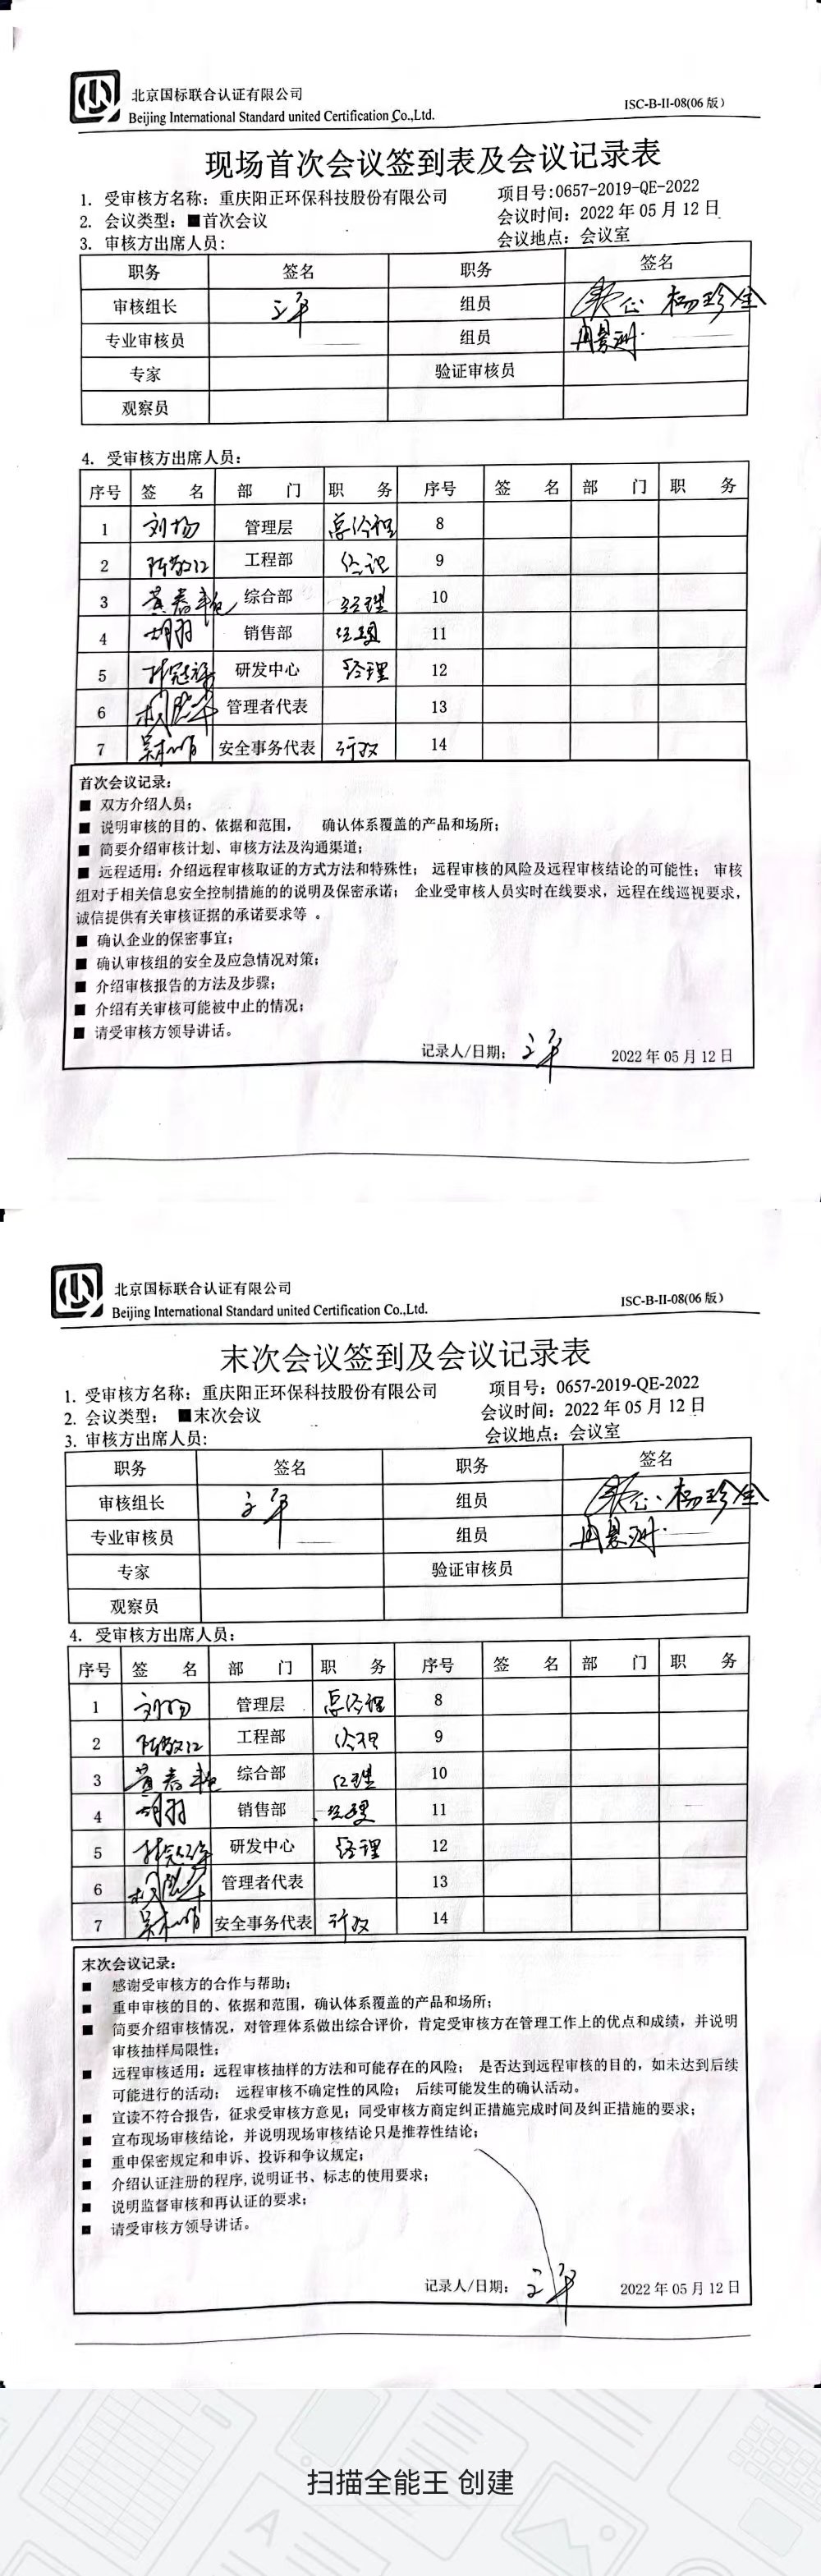 北京国标联合认证有限公司
Beijing International Standard united Certification Co.,Ltd.
ISC-B-II-08(06 版)
现场首次会议签到表及会议记录表
1. 受审核方名称：重庆阳正环保科技股份有限公司 项目号:0657-2019-QE-2022
2. 会议类型：■首次会议 会议时间：2022 年 05 月 12 日
3. 审核方出席人员： 会议地点：会议室
职务 签名 职务 签名
审核组长 组员 杨珍全
专业审核员 组员
专家 验证审核员
观察员
4. 受审核方出席人员：
序号 签 名 部 门 职 务 序号 签 名 部 门 职 务
1 刘扬 管理层 总经理 8
2 陈敬江 工程部 经理 9
3 黄春艳 综合部 经理 10
4 胡羽 销售部 经理 11
5 研发中心 经理 12
6 管理者代表 13
7 安全事务代表 行政 14
首次会议记录：
■ 双方介绍人员；
■ 说明审核的目的、依据和范围， 确认体系覆盖的产品和场所；
■ 简要介绍审核计划、审核方法及沟通渠道；
■ 远程适用：介绍远程审核取证的方式方法和特殊性； 远程审核的风险及远程审核结论的可能性； 审核
组对于相关信息安全控制措施的的说明及保密承诺； 企业受审核人员实时在线要求，远程在线巡视要求，
诚信提供有关审核证据的承诺要求等 。
■ 确认企业的保密事宜；
■ 确认审核组的安全及应急情况对策；
■ 介绍审核报告的方法及步骤；
■ 介绍有关审核可能被中止的情况；
■ 请受审核方领导讲话。
记录人/日期： 2022 年 05 月 12 日
北京国标联合认证有限公司
Beijing International Standard united Certification Co.,Ltd.
ISC-B-II-08(06 版)
末次会议签到及会议记录表
1. 受审核方名称：重庆阳正环保科技股份有限公司 项目号：0657-2019-QE-2022
2. 会议类型： ■末次会议 会议时间：2022 年 05 月 12 日
3. 审核方出席人员: 会议地点：会议室
职务 签名 职务 签名
审核组长 组员 杨珍全
专业审核员 组员
专家 验证审核员
观察员
4. 受审核方出席人员：
序号 签 名 部 门 职 务 序号 签 名 部 门 职 务
1 刘扬 管理层 总经理 8
2 陈敬江 工程部 经理 9
3 黄春艳 综合部 经理 10
4 胡羽 销售部 经理 11
5 研发中心 经理 12
6 管理者代表 13
7 安全事务代表 行政 14
末次会议记录：
■ 感谢受审核方的合作与帮助；
■ 重申审核的目的、依据和范围，确认体系覆盖的产品和场所；
■ 简要介绍审核情况，对管理体系做出综合评价，肯定受审核方在管理工作上的优点和成绩，并说明
审核抽样局限性；
■ 远程审核适用：远程审核抽样的方法和可能存在的风险； 是否达到远程审核的目的，如未达到后续
可能进行的活动； 远程审核不确定性的风险； 后续可能发生的确认活动。
■ 宣读不符合报告，征求受审核方意见；同受审核方商定纠正措施完成时间及纠正措施的要求；
■ 宣布现场审核结论，并说明现场审核结论只是推荐性结论；
■ 重申保密规定和申诉、投诉和争议规定；
■ 介绍认证注册的程序,说明证书、标志的使用要求；
■ 说明监督审核和再认证的要求；
■ 请受审核方领导讲话。
记录人/日期： 2022 年 05 月 12 日
扫描全能王 创建